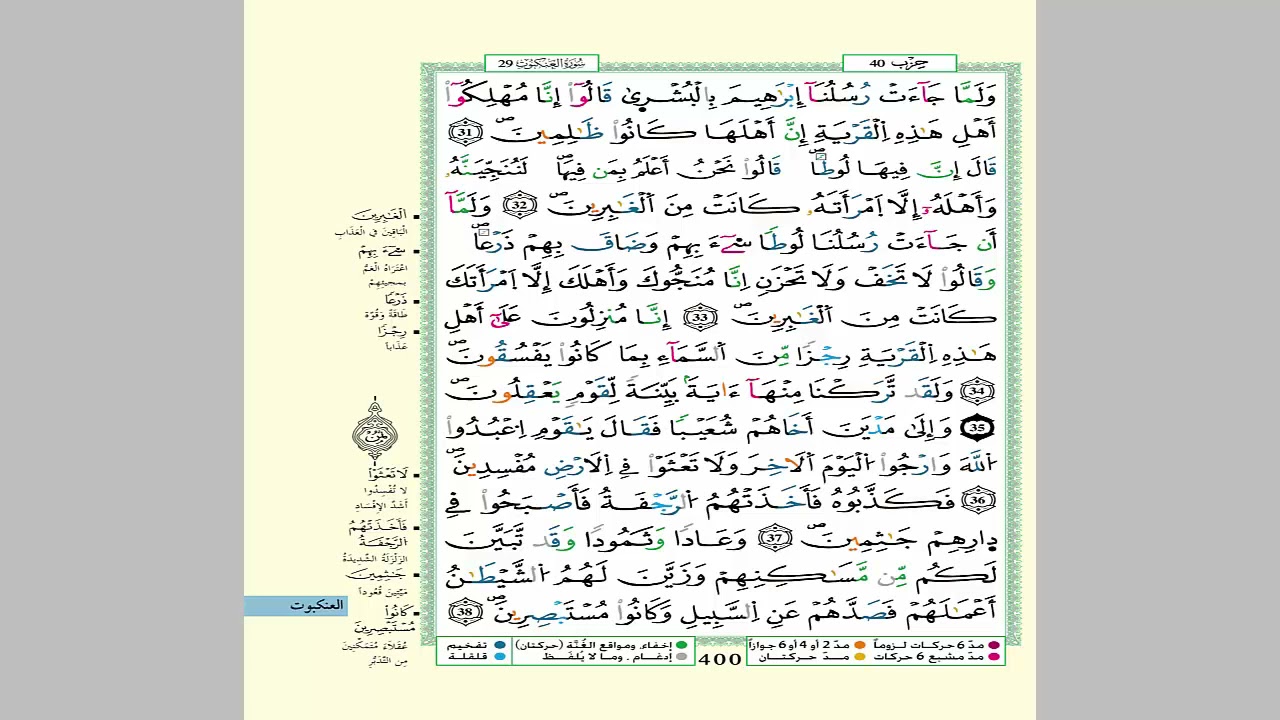 سُورَةُ العَنكَبُوتِ 29
حِزْب 40
وَلَمَّا جَآءَتْ رُسُلُنَآ إِبْرَٰهِيمَ بِالْبُشْر۪ىٰ قَالُوٓاْ إِنَّا مُهْلِكُوٓاْ
أَهْلِ هَٰذِهِ اِلْقَرْيَةِ إِنَّ أَهْلَهَا كَانُواْ ظَٰلِمِينَۖ 31
قَالَ إِنَّ فِيهَا لُوطاٗۖ قَالُواْ نَحْنُ أَعْلَمُ بِمَن فِيهَاۖ لَنُنَجِّيَنَّهُۥ
وَأَهْلَهُۥٓ إِلَّا اَمْرَأَتَهُۥ كَانَتْ مِنَ اَلْغَٰبِرِينَۖ 32 وَلَمَّآ
أَن جَآءَتْ رُسُلُنَا لُوطاٗ سِےٓءَ بِهِمْ وَضَاقَ بِهِمْ ذَرْعاٗۖ
وَقَالُواْ لَا تَخَفْ وَلَا تَحْزَنِ اِنَّا مُنَجُّوكَ وَأَهْلَكَ إِلَّا اَمْرَأَتَكَ
كَانَتْ مِنَ اَلْغَٰبِرِينَۖ 33 إِنَّا مُنزِلُونَ عَلَىٰٓ أَهْلِ
هَٰذِهِ اِلْقَرْيَةِ رِجْزاٗ مِّنَ اَلسَّمَآءِ بِمَا كَانُواْ يَفْسُقُونَۖ
34 وَلَقَد تَّرَكْنَا مِنْهَآ ءَايَةَۢ بَيِّنَةٗ لِّقَوْمٖ يَعْقِلُونَۖ
35 وَإِلَىٰ مَدْيَنَ أَخَاهُمْ شُعَيْباٗ فَقَالَ يَٰقَوْمِ اِعْبُدُواْ
اُللَّهَ وَارْجُواْ اُلْيَوْمَ اَلَاخِرَ وَلَا تَعْثَوْاْ فِے اِلَارْضِ مُفْسِدِينَۖ
36 فَكَذَّبُوهُ فَأَخَذَتْهُمُ اُلرَّجْفَةُ فَأَصْبَحُواْ فِے
دِارِهِمْ جَٰثِمِينَۖ 37 وَعَاداٗ وَثَمُوداٗ وَقَد تَّبَيَّنَ
لَكُم مِّن مَّسَٰكِنِهِمْ وَزَيَّنَ لَهُمُ اُلشَّيْطَٰنُ
أَعْمَٰلَهُمْ فَصَدَّهُمْ عَنِ اِلسَّبِيلِ وَكَانُواْ مُسْتَبْصِرِينَۖ 38
اَلْغَٰبِرِينَ
الْبَاقِينَ فِي الْعَذَابِ
سِےٓءَ بِهِمْ
اعْتَرَاهُ الْغَمُّ
بِمَجِيئِهِمْ
ذَرْعاً
طَاقَةً وَقُوَّةً
رِجْزاً
عَذَاباً
ثمن
لَا تَعْثَوْاْ
لا تُفْسِدُوا
أَشَدَّ الإِفْسَادِ
فَأَخَذَتْهُمُ
اُلرَّجْفَةُ
الزَّلْزَلَةُ الشَّدِيدَةُ
جَٰثِمِينَ
مَيِّتِينَ قُعُوداً
العنكبوت
كَانُواْ
مُسْتَبْصِرِينَ
عُقَلَاءَ مُتَمَكِّنِينَ
مِنَ التَّدَبُّرِ
مدّ 6 حركات لزوماً
مدّ 2 أو 4 أو 6 جوازاً
مدّ مشبع 6 حركات
مدّ حركتان
400
إخفاء، ومواقع الغُنَّة (حركتان)
إدغام، وما لا يُلفَظ
تفخيم
قلقلة